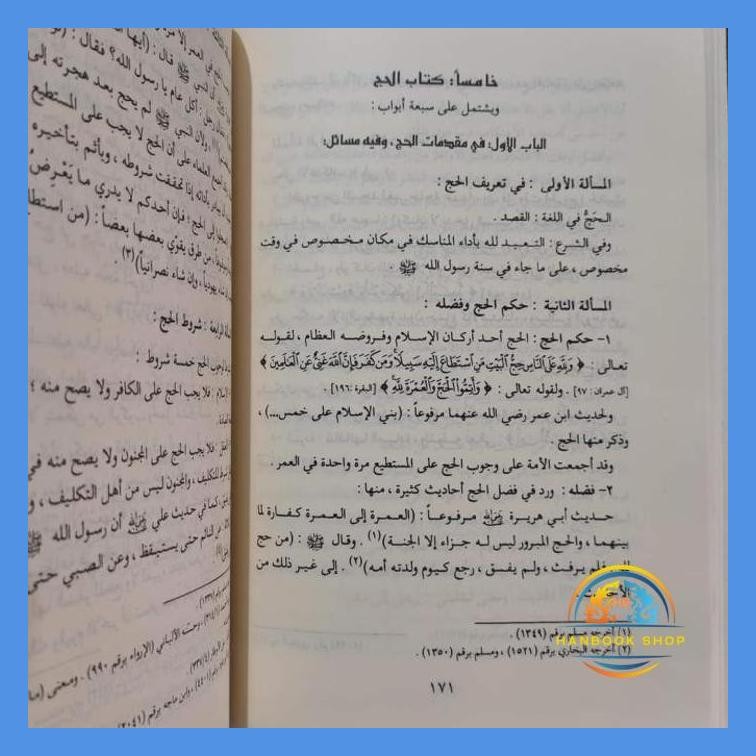 خامساً: كتاب الحج
ويشتمل على سبعة أبواب :
الباب الأول: في مقدمات الحج، وفيه مسائل:
المسألة الأولى : في تعريف الحج :
الحَجُّ في اللغة : القصد .
وفي الشرع : التعبد لله بأداء المناسك في مكان مخصوص في وقت
مخصوص ، على ما جاء في سنة رسول الله ﷺ .
المسألة الثانية : حكم الحج وفضله :
١- حكم الحج : الحج أحد أركان الإسلام وفروضه العظام ، لقوله
تعالى : ﴿ وَلِلَّهِ عَلَى النَّاسِ حِجُّ الْبَيْتِ مَنِ اسْتَطَاعَ إِلَيْهِ سَبِيلًا وَمَن كَفَرَ فَإِنَّ اللَّهَ غَنِيٌّ عَنِ الْعَالَمِينَ ﴾
[آل عمران : ٩٧] . ولقوله تعالى : ﴿ وَأَتِمُّوا الْحَجَّ وَالْعُمْرَةَ لِلَّهِ ﴾ [البقرة : ١٩٦] .
ولحديث ابن عمر رضي الله عنهما مرفوعاً : (بني الإسلام على خمس...) ،
وذكر منها الحج .
وقد أجمعت الأمة على وجوب الحج على المستطيع مرة واحدة في العمر .
٢- فضله : ورد في فضل الحج أحاديث كثيرة ، منها :
حديث أبي هريرة رضي الله عنه مرفوعاً : (العمرة إلى العمرة كفارة لما
بينهما ، والحج المبرور ليس له جزاء إلا الجنة)(١) . وقال ﷺ : (من حج
فلم يرفث ، ولم يفسق ، رجع كيوم ولدته أمه)(٢) . إلى غير ذلك من
(١) أخرجه مسلم برقم (١٣٤٩) .
(٢) أخرجه البخاري برقم (١٥٢١) ، ومسلم برقم (١٣٥٠) .
١٧١
HANBOOK SHOP
قال : (أيها
رجل : أكل عام يا رسول الله؟ فقال : (لو
، ولأن النبي ﷺ لم يحج بعد هجرته إلى
العلماء على أن الحج لا يجب على المستطيع
بأدائه إذا تحققت شروطه ، ويأثم بتأخيره
إلى الحج ؛ فإن أحدكم لا يدري ما يَعْرِضُ
، من طرق يقوّي بعضها بعضاً : (من استطاع
يهودياً ، وإن شاء نصرانياً)(٣)
الرابعة : شروط الحج :
الحج خمسة شروط :
الإسلام : فلا يجب الحج على الكافر ولا يصح منه ؛
فلا يجب الحج على المجنون ولا يصح منه في
للتكليف ، والمجنون ليس من أهل التكليف ، و
كما في حديث علي رضي الله عنه أن رسول الله ﷺ
النائم حتى يستيقظ ، وعن الصبي حتى
وحسنه الألباني (الإرواء برقم ٩٩٠) . ومعنى
وابن ماجه برقم (٢٠٤١)